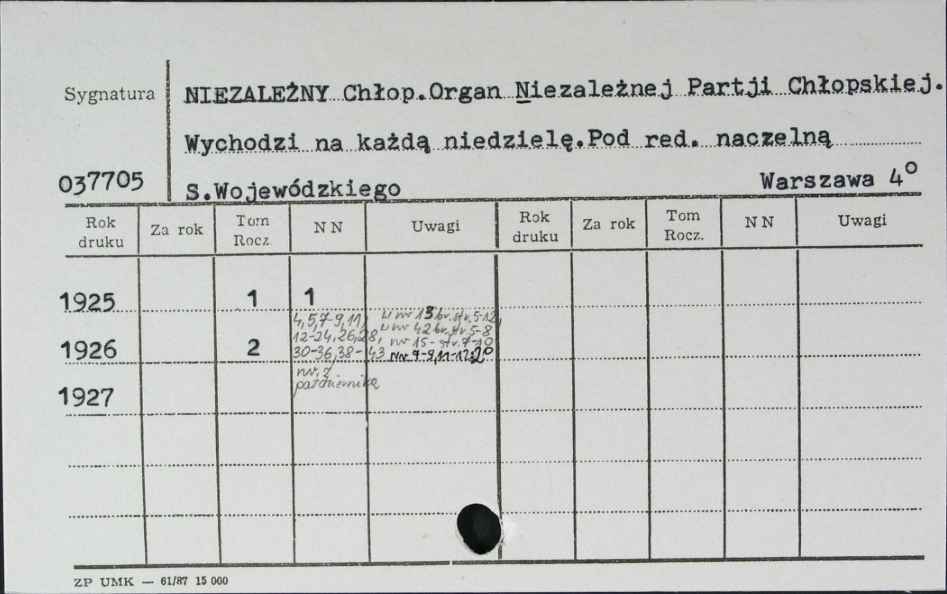 Sygnatura NIEZALEŻNY Chłop.Organ Niezależnej Partji Chłopskiej.
Wychodzi na każdą niedzielę.Pod red. naczelną
037705 S.Wojewódzkiego Warszawa 4°
Rok druku Za rok Tom Rocz NN Uwagi Rok druku Za rok Tom Rocz. NN Uwagi
1925 1 1
4,5,7-9,11, w nr 13 br. str. 5-12,
12-24,26,28, w nr 42 br. str 5-8
1926 2 30-36,38-43 nr 15- str. 7-10
Nr. 7-9,11-12 2°
nr. z
1927 października
ZP UMK — 61/87 15 000